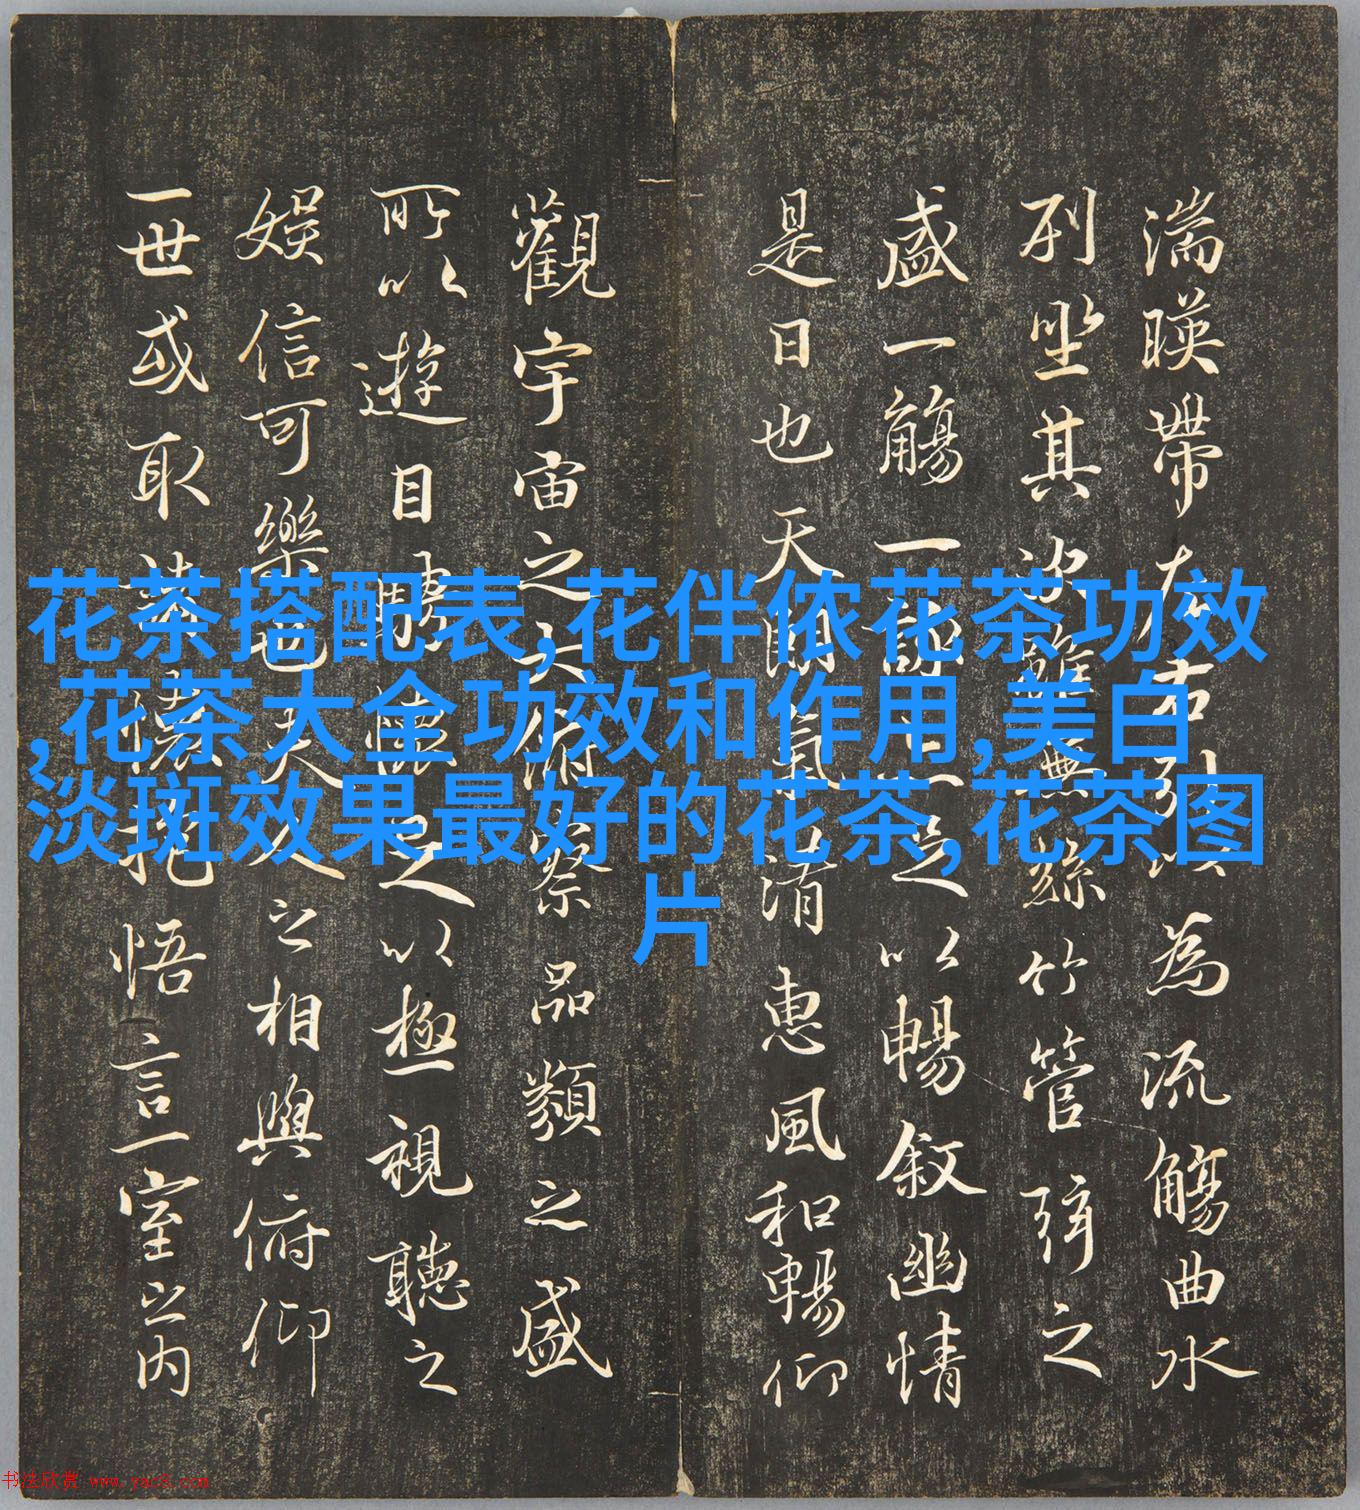 湍暎帶左右引以為流觴曲水
列坐其次雖無絲竹管弦之
盛一觴一詠亦足以暢敘幽情
是日也天朗氣清惠風和暢仰
觀宇宙之大俯察品類之盛
所以遊目騁懷足以極視聽之
娛信可樂也夫人之相與俯仰
一世或取諸懷抱悟言一室之內
花茶搭配表,花伴侬花茶功效
,花茶大全功效和作用,美白
淡斑效果最好的花茶,花茶图
片
书法欣赏 www.yac8.com